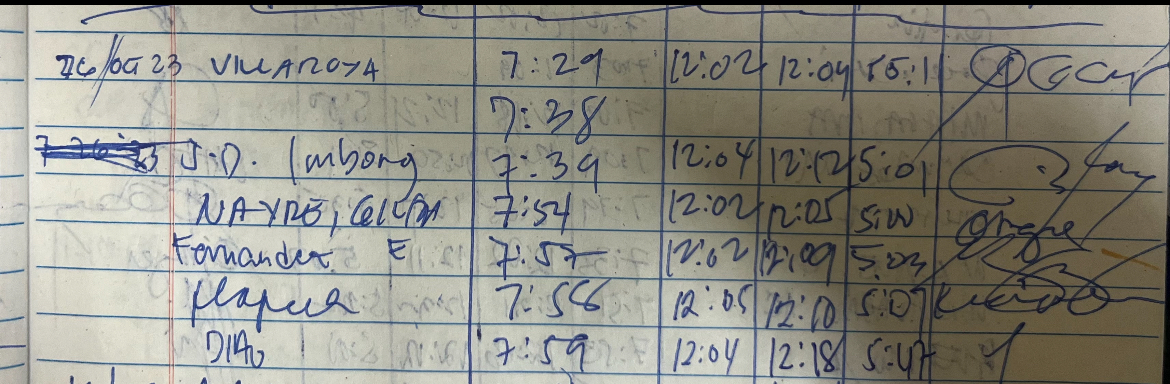 26/Oct 23 VILLAROYA 7:29 12:02 12:04 5:11
7:38
J.D. Imbong 7:39 12:04 12:12 5:01
NAYRE, 7:54 12:02 12:05 5:00
Fernandez E 7:57 12:02 12:09 5:03
7:56 12:05 12:10 5:07
DIAO 7:59 12:04 12:18 5:47